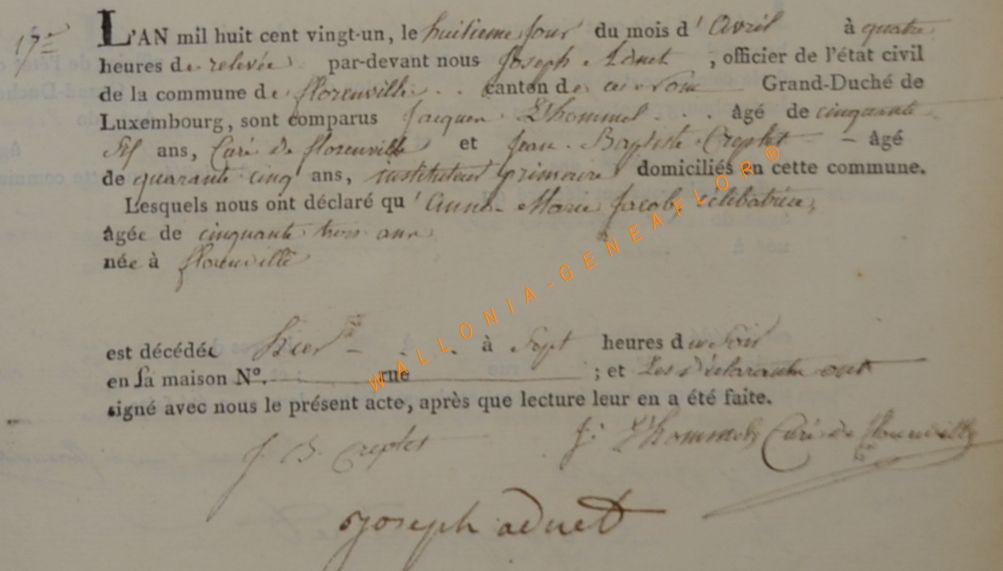 17e
L'AN mil huit cent vingt-un, le huitieme jour du mois d'avril à quatre
heures de relevée par-devant nous Joseph Adnet, officier de l'état civil
de la commune de florenville canton de Grand-Duché de
Luxembourg, sont comparus Jacques L'hommel âgé de cinquante
ans, Curé de florenville et Jean Baptiste Creptet âgé
de quarante cinq ans, instituteur primaire domiciliés en cette commune.
Lesquels nous ont déclaré qu'anne Marie Jacob célibatrice,
âgée de cinquante trois ans
née à florenville
est décédée hier à Sept heures du Soir
en sa maison N°. rue ; et Les déclarants ont
signé avec nous le présent acte, après que lecture leur en a été faite.
J. B. Creptet
J. L'hommel Curé de florenville
Joseph adnet
WALLONIA-GENEAFLOR®